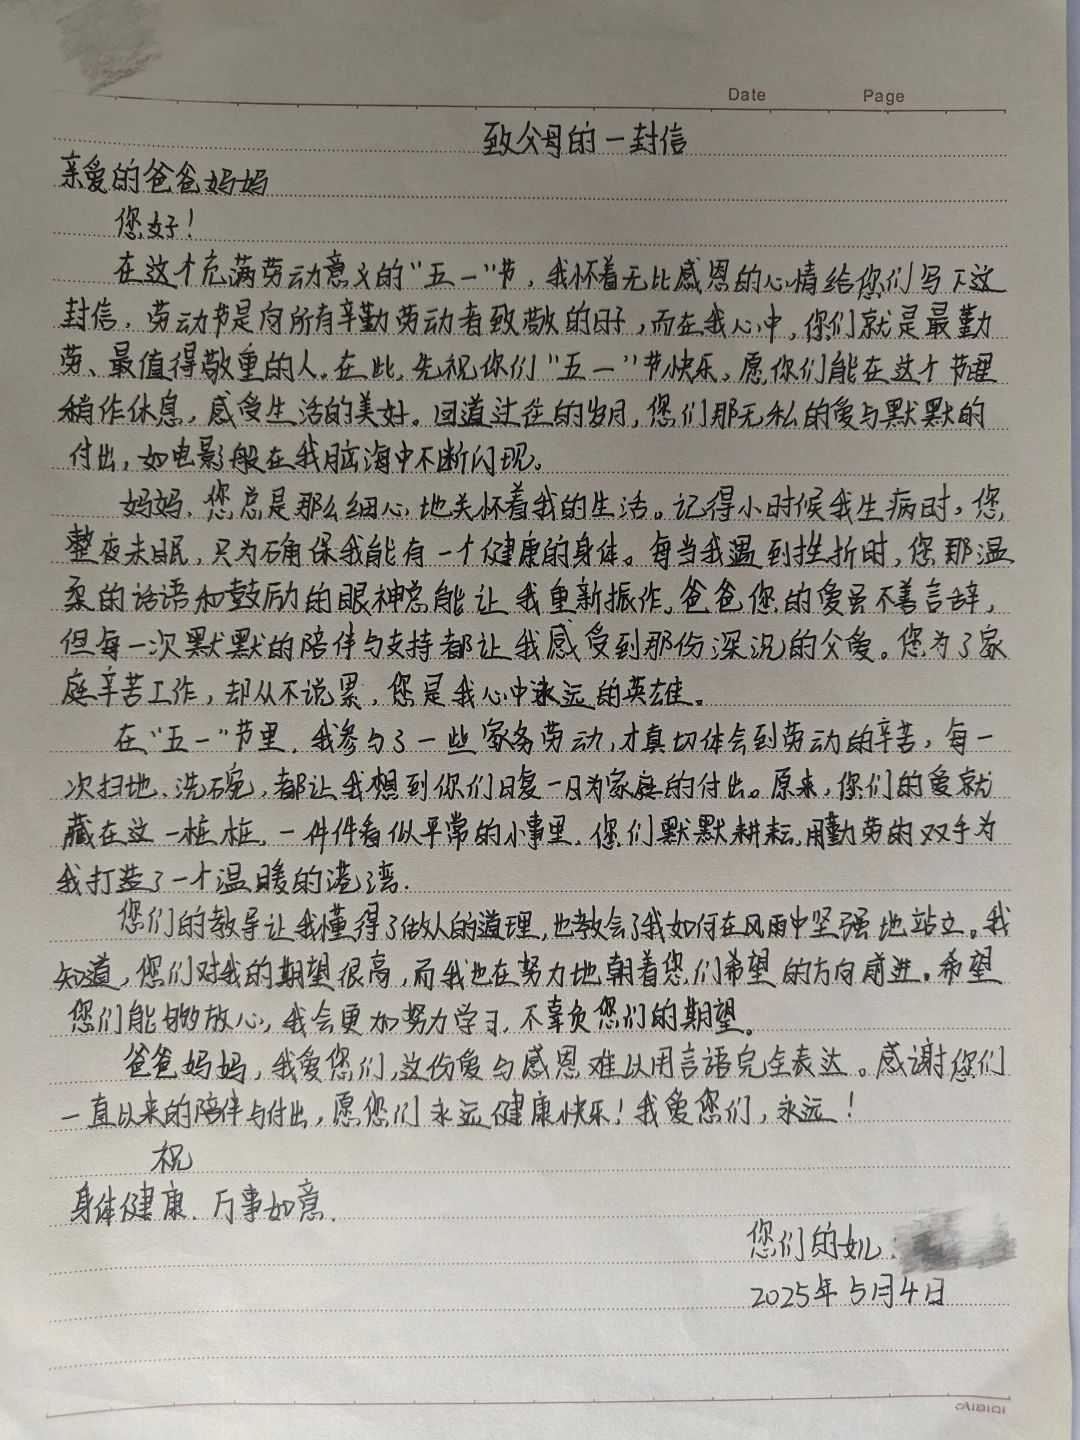 Date Page
致父母的一封信
亲爱的爸爸妈妈
您好！
在这个充满劳动意义的“五一”节，我怀着无比感恩的心情给您们写下这
封信，劳动节是向所有辛勤劳动者致敬的日子，而在我心中，你们就是最勤
劳、最值得敬重的人。在此，先祝你们“五一”节快乐，愿你们能在这个节里
稍作休息，感受生活的美好。回道过往的岁月，您们那无私的爱与默默的
付出，如电影般在我脑海中不断闪现。
妈妈，您总是那么细心地关怀着我的生活。记得小时候我生病时，您
整夜未眠，只为确保我能有一个健康的身体。每当我遇到挫折时，您那温
柔的话语和鼓励的眼神总能让我重新振作。爸爸您的爱虽不善言辞，
但每一次默默的陪伴与支持都让我感受到那份深沉的父爱。您为了家
庭辛苦工作，却从不说累，您是我心中永远的英雄。
在“五一”节里，我参与了一些家务劳动，才真切体会到劳动的辛苦，每一
次扫地、洗碗，都让我想到你们日复一日为家庭的付出。原来，您们的爱就
藏在这一桩桩，一件件看似平常的小事里，您们默默耕耘，用勤劳的双手为
我打造了一个温暖的港湾.
您们的教导让我懂得了做人的道理，也教会了我如何在风雨中坚强地站立。我
知道，您们对我的期望很高，而我也在努力地朝着您们希望的方向前进。希望
您们能够放心，我会更加努力学习，不辜负您们的期望。
爸爸妈妈，我爱您们，这份爱与感恩难以用言语完全表达。感谢您们
一直以来的陪伴与付出，愿您们永远健康快乐！我爱您们，永远！
祝
身体健康、万事如意.
您们的女儿：
2025年5月4日